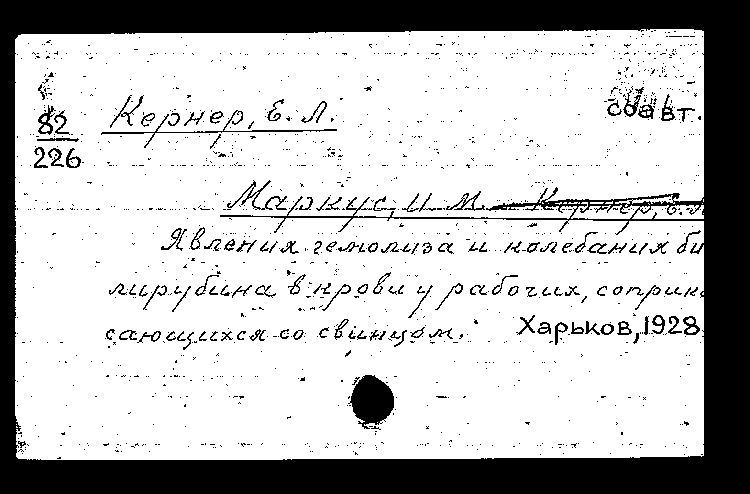 Кернер, Е. Л. соавт.
82
226
Маркус, И М. — Кернер, Е. Л
Явления гемолиза и колебания би
лирубина в крови у рабочих, соприка
сающихся со свинцом. Харьков, 1928